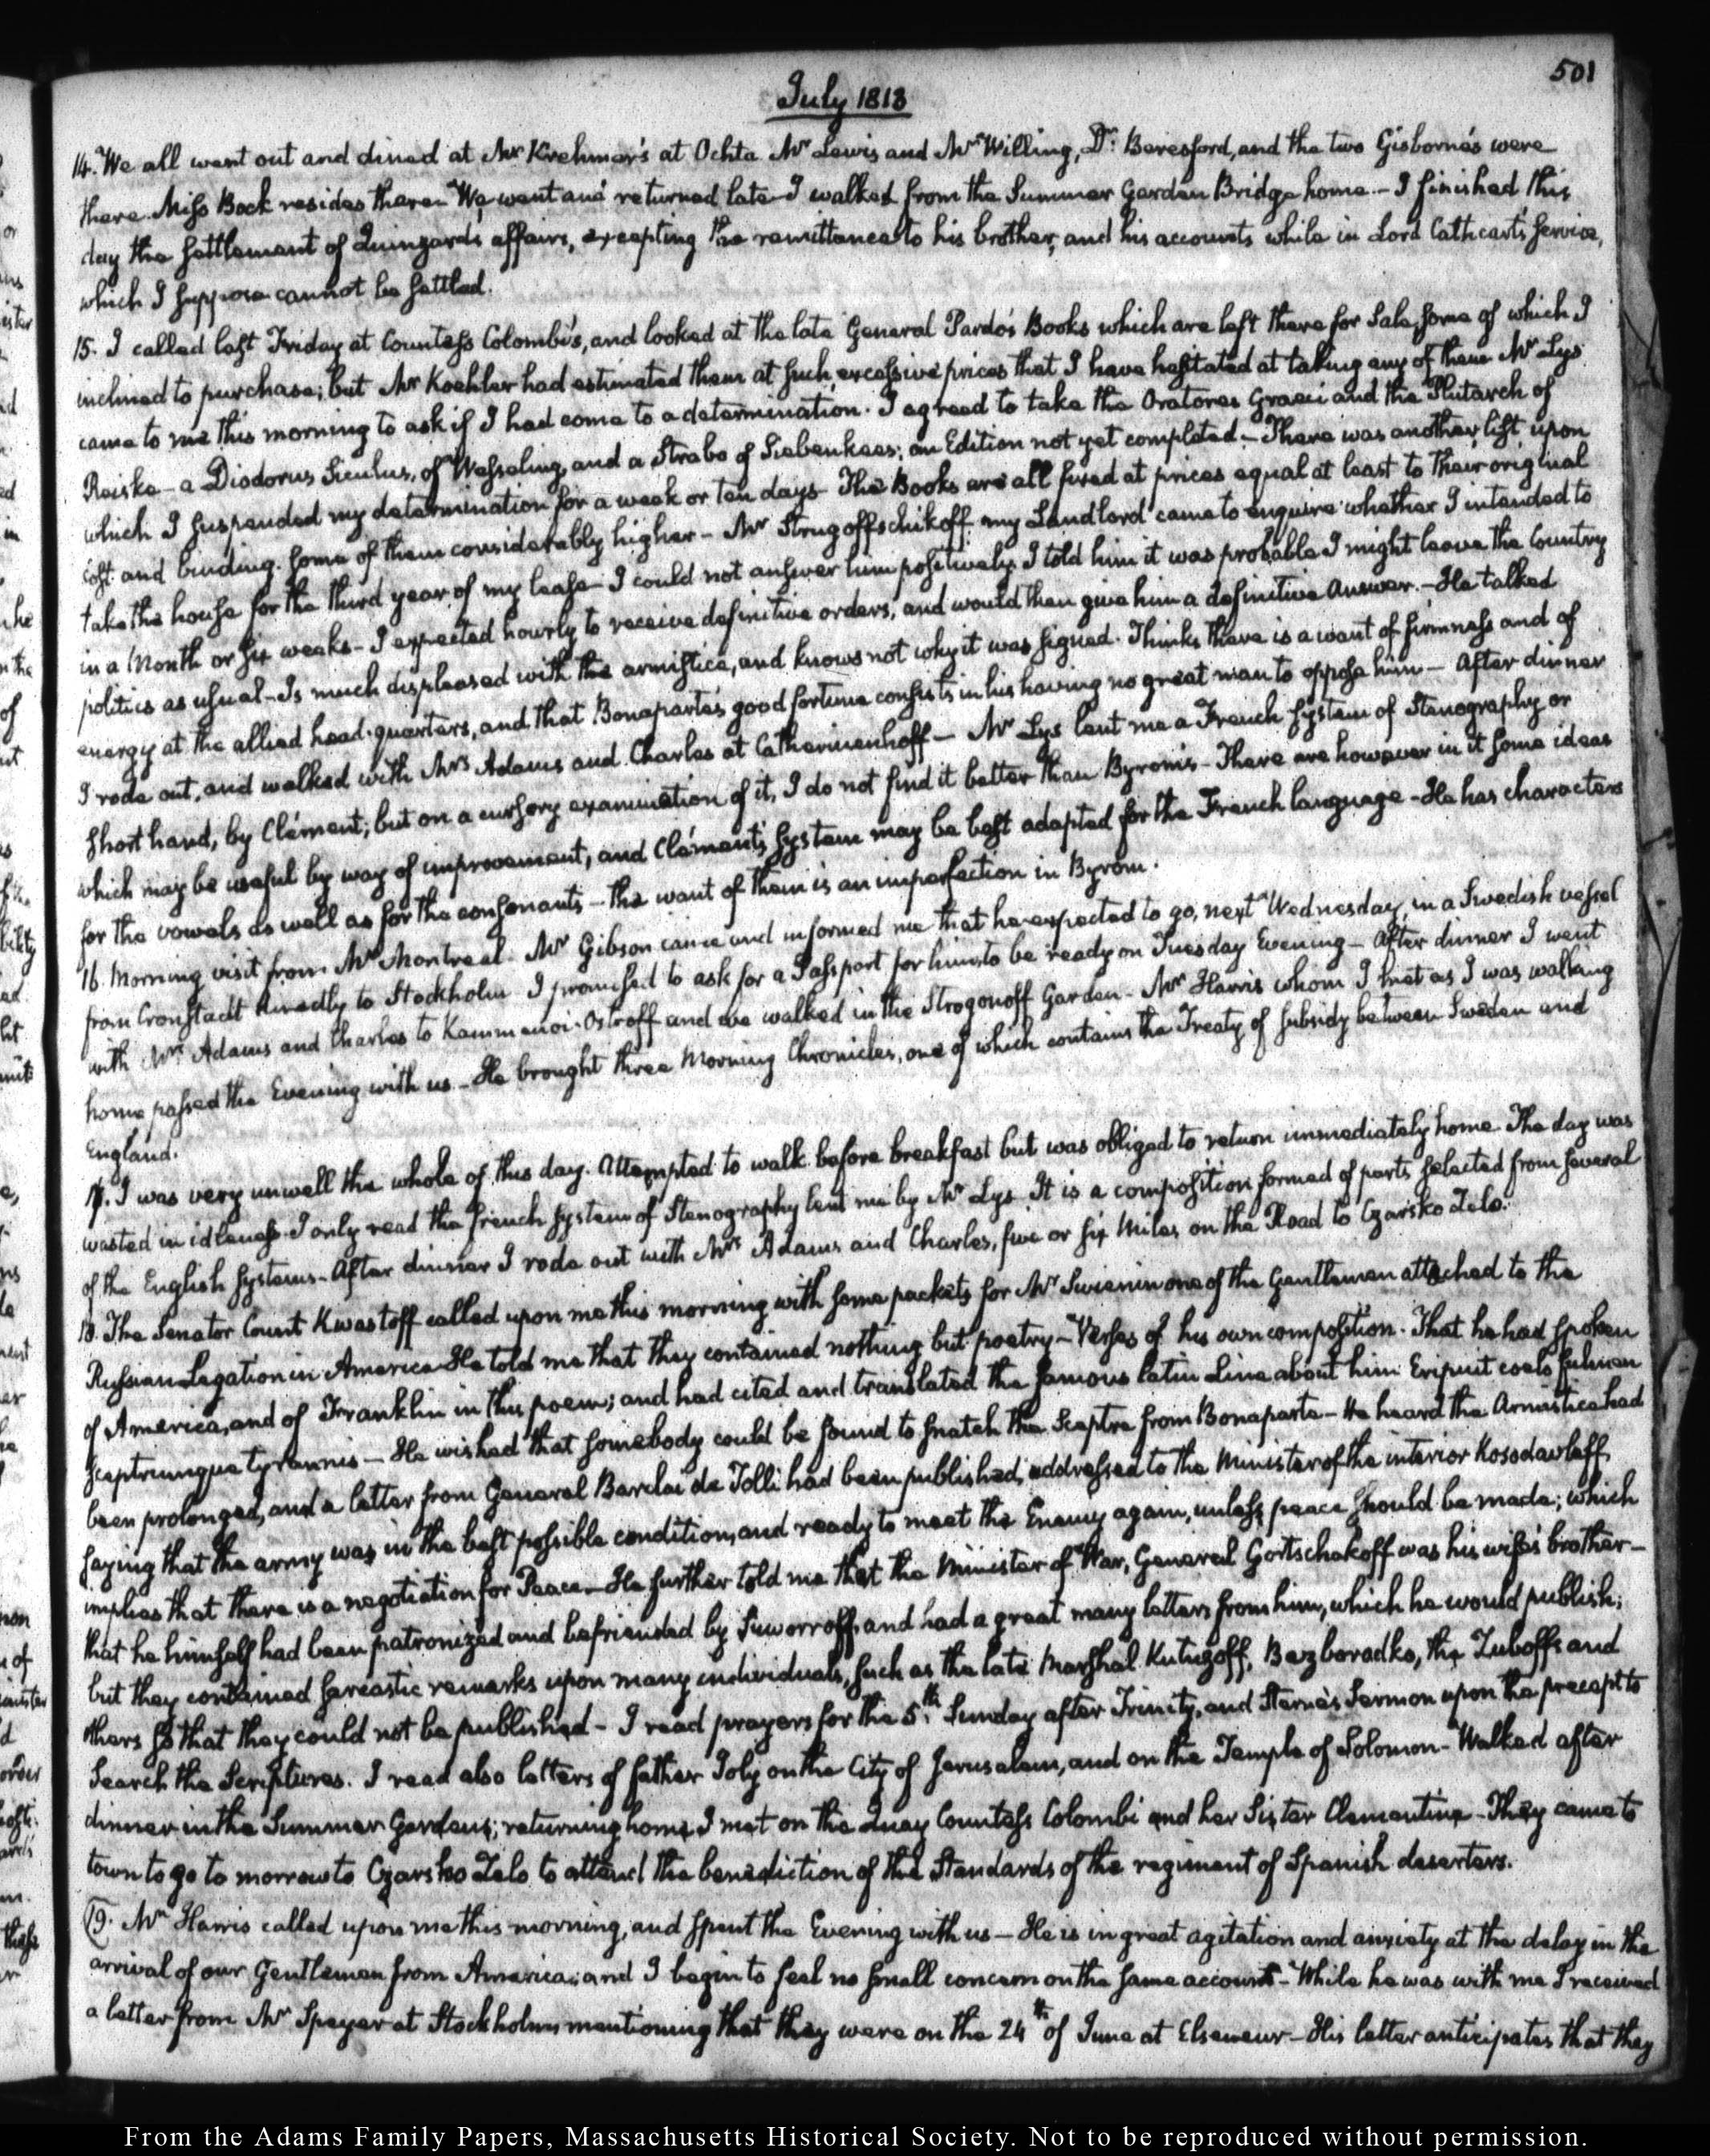 501
July 1813
14. We all went out and dined at Mr Krehmer's at Ochta. Mr Lewis and Mr Willing, Dr: Beresford, and the two Gisborne's were
there. Miss Bock resides there. We went and returned late. I walked from the Summer Garden Bridge home. – I finished this
day the settlement of Quinzard's affairs, excepting the remittances to his brother, and his accounts while in Lord Cathcart's service,
which I suppose cannot be settled.
15. I called last Friday at Countess Colombi's, and looked at the late General Pardo's Books which are left there for Sale, some of which I
inclined to purchase; but Mr Koehler had estimated them at such excessive prices that I have hesitated at taking any of them. Mr Lys
came to me this morning to ask if I had come to a determination. I agreed to take the Oratores Graeci and the Plutarch of
Reiske – a Diodorus Siculus, of Wesseling, and a Strabo of Siebenkees; an Edition not yet completed – There was another list upon
which I suspended my determination for a week or ten days – The Books are all fixed at prices equal at least to their original
cost and binding. Some of them considerably higher – Mr Strugoffschikoff my Landlord came to enquire whether I intended to
take the house for the third year of my lease – I could not answer him positively. I told him it was probable I might leave the Country
in a Month or six weeks – I expected hourly to receive definitive orders, and would then give him a definitive Answer. – He talked
politics as usual – Is much displeased with the armistice, and knows not why it was signed. Thinks there is a want of firmness and of
energy at the allied head-quarters, and that Bonaparte's good fortune consists in his having no great man to oppose him – After dinner
I rode out, and walked with Mrs Adams and Charles at Catherinenhoff – Mr Lys lent me a French system of Stenography or
short hand, by Clément; but on a cursory examination of it, I do not find it better than Byrom's – There are however in it some ideas
which may be useful by way of improvement, and Clément's system may be best adapted for the French language – He has characters
for the vowels as well as for the consonants – the want of them is an imperfection in Byrom.
16. Morning visit from Mr Montreal. Mr Gibson came and informed me that he expected to go, next Wednesday, in a Swedish vessel
from Cronstadt directly to Stockholm. I promised to ask for a Passport for him to be ready on Tuesday Evening – After dinner I went
with Mrs Adams and Charles to Kammenoi-Ostroff and we walked in the Strogonoff Garden – Mr Harris whom I met as I was walking
home passed the Evening with us – He brought three Morning Chronicles, one of which contains the Treaty of subsidy between Sweden and
England.
17. I was very unwell the whole of this day. Attempted to walk before breakfast but was obliged to return immediately home. The day was
wasted in idleness. I only read the french system of Stenography lent me by Mr Lys. It is a composition formed of parts selected from several
of the English systems – After dinner I rode out with Mrs Adams and Charles, five or six miles on the Road to Czarsko Zelo.
18. The Senator Count Kwastoff called upon me this morning with some packets for Mr Swienin one of the Gentlemen attached to the
Russian Legation in America. He told me that they contained nothing but poetry – Verses of his own composition. That he had spoken
of America, and of Franklin in this poem; and had cited and translated the famous latin Line about him Eripuit coelo fulmen
sceptrumque tyrannis – He wished that somebody could be found to snatch the Sceptre from Bonaparte – He heard the Armistice had
been prolonged, and a letter from General Barclai de Tolli had been published, addressed to the Minister of the interior Kosodavleff,
saying that the army was in the best possible condition, and ready to meet the Enemy again, unless peace should be made; which
implies that there is a negotiation for Peace. – He further told me that the Minister of War, General Gortschakoff was his wife's brother –
that he himself had been patronized and befriended by Suworroff, and had a great many letters from him, which he would publish;
but they contained sarcastic remarks upon many individuals, such as the late Marshal Kutuzoff, Bezborodko, the Zuboffs and
others so that they could not be published – I read prayers for the 5th. Sunday after Trinity, and Sterne's Sermon upon the precept to
Search the Scriptures. I read also letters of father Joly on the City of Jerusalem, and on the Temple of Solomon – Walked after
dinner in the Summer Gardens; returning home I met on the Quay Countess Colombi and her Sister Clementine – They came to
town to go to morrow to Czarsko Zelo to attend the benediction of the Standards of the regiment of Spanish deserters.
19. Mr Harris called upon me this morning, and spent the Evening with us – He is in great agitation and anxiety at the delay in the
arrival of our Gentlemen from America; and I begin to feel no small concern on the same account – While he was with me I received
a letter from Mr Speyer at Stockholm mentioning that they were on the 24th of June at Elseneur – His letter anticipates that they
From the Adams Family Papers, Massachusetts Historical Society. Not to be reproduced without permission.